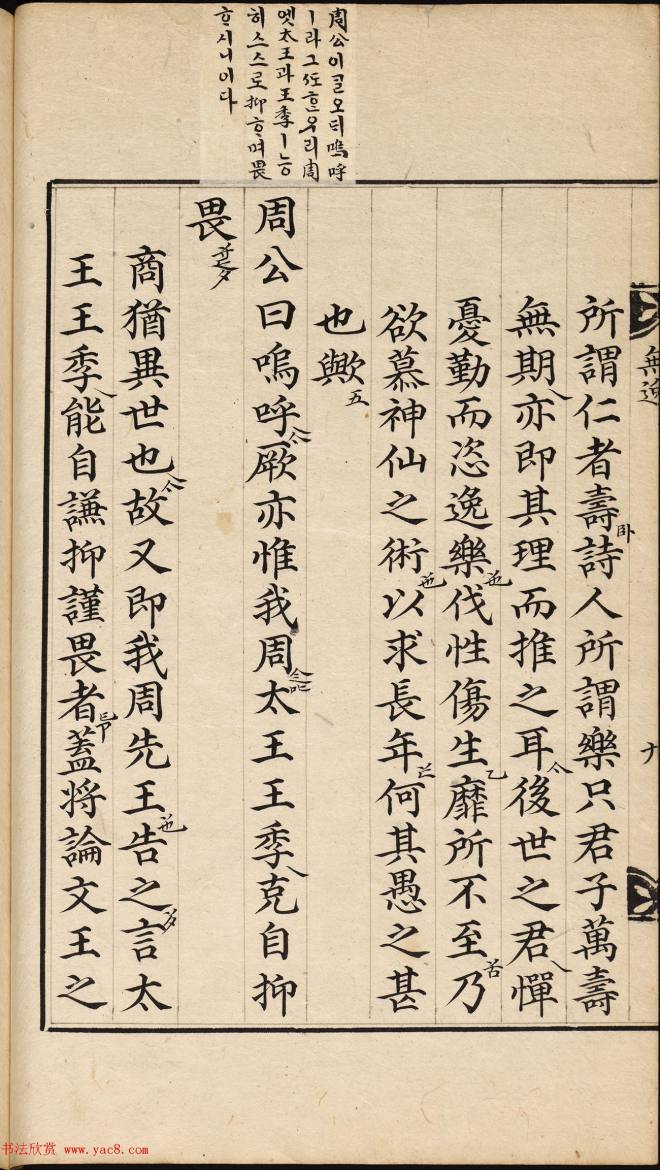 周公이 글오되 嗚呼
ㅣ라 그 또ᄒᆞᆫ 우리 周
엣 太王과 王季ㅣ 능
히 스스로 抑ᄒᆞ며 畏
ᄒᆞ시니이다
無逸
所謂仁者壽詩人所謂樂只君子萬壽
無期亦即其理而推之耳後世之君憚
憂勤而恣逸樂伐性傷生靡所不至乃
欲慕神仙之術以求長年何其愚之甚
也歟
周公曰嗚呼厥亦惟我周太王王季克自抑
畏
商猶異世也故又即我周先王告之言太
王王季能自謙抑謹畏者蓋将論文王之
书法欣赏 www.yac8.com